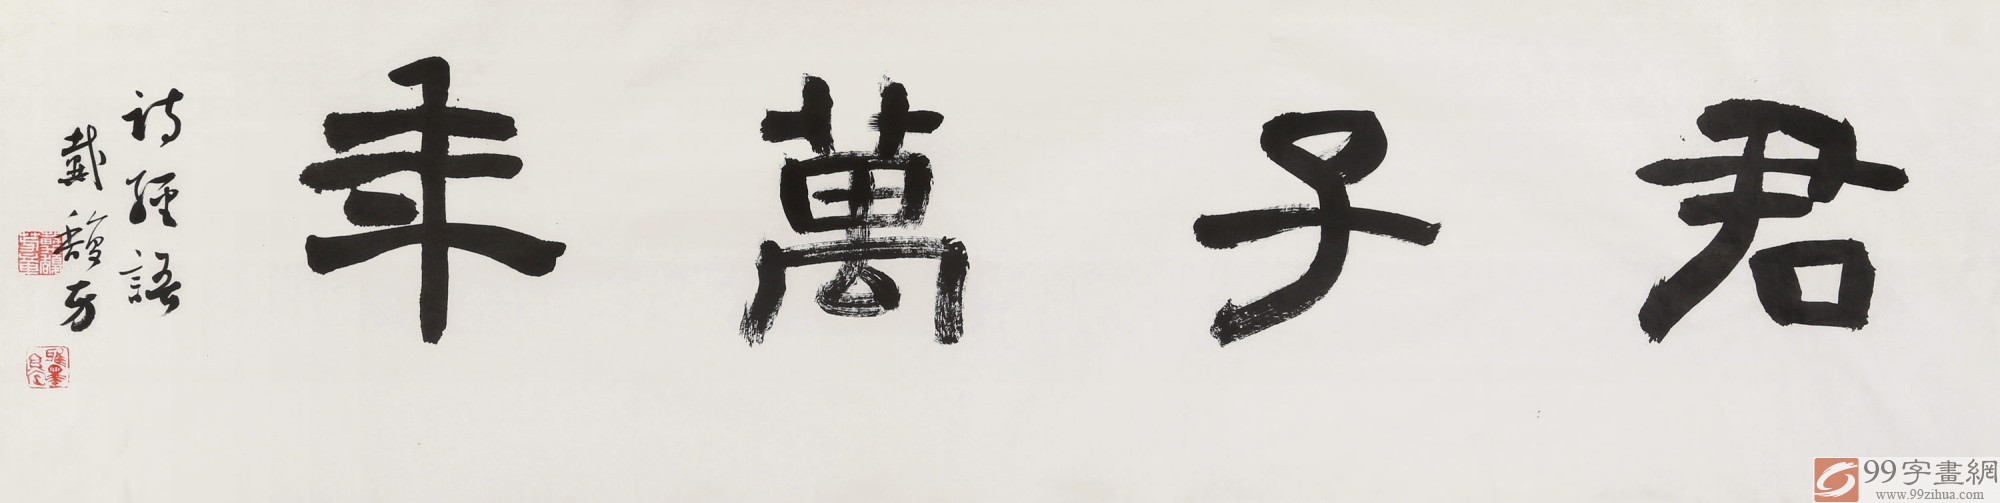 君子萬年
詩經語
戴馥芳
99字畫網
www.99zihua.com